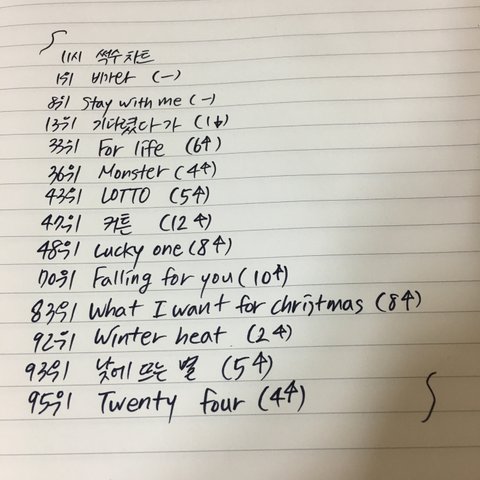 11시 썩수차트
1위 비가와 (-)
8위 Stay with me (-)
13위 기다렸다가 (1↓)
33위 For life (6↑)
36위 Monster (4↑)
43위 LOTTO (5↑)
47위 커튼 (12↑)
48위 Lucky one (8↑)
70위 Falling for you (10↑)
83위 What I want for christmas (8↑)
92위 Winter heat (2↑)
93위 낮에 뜨는 별 (5↑)
95위 Twenty four (4↑)